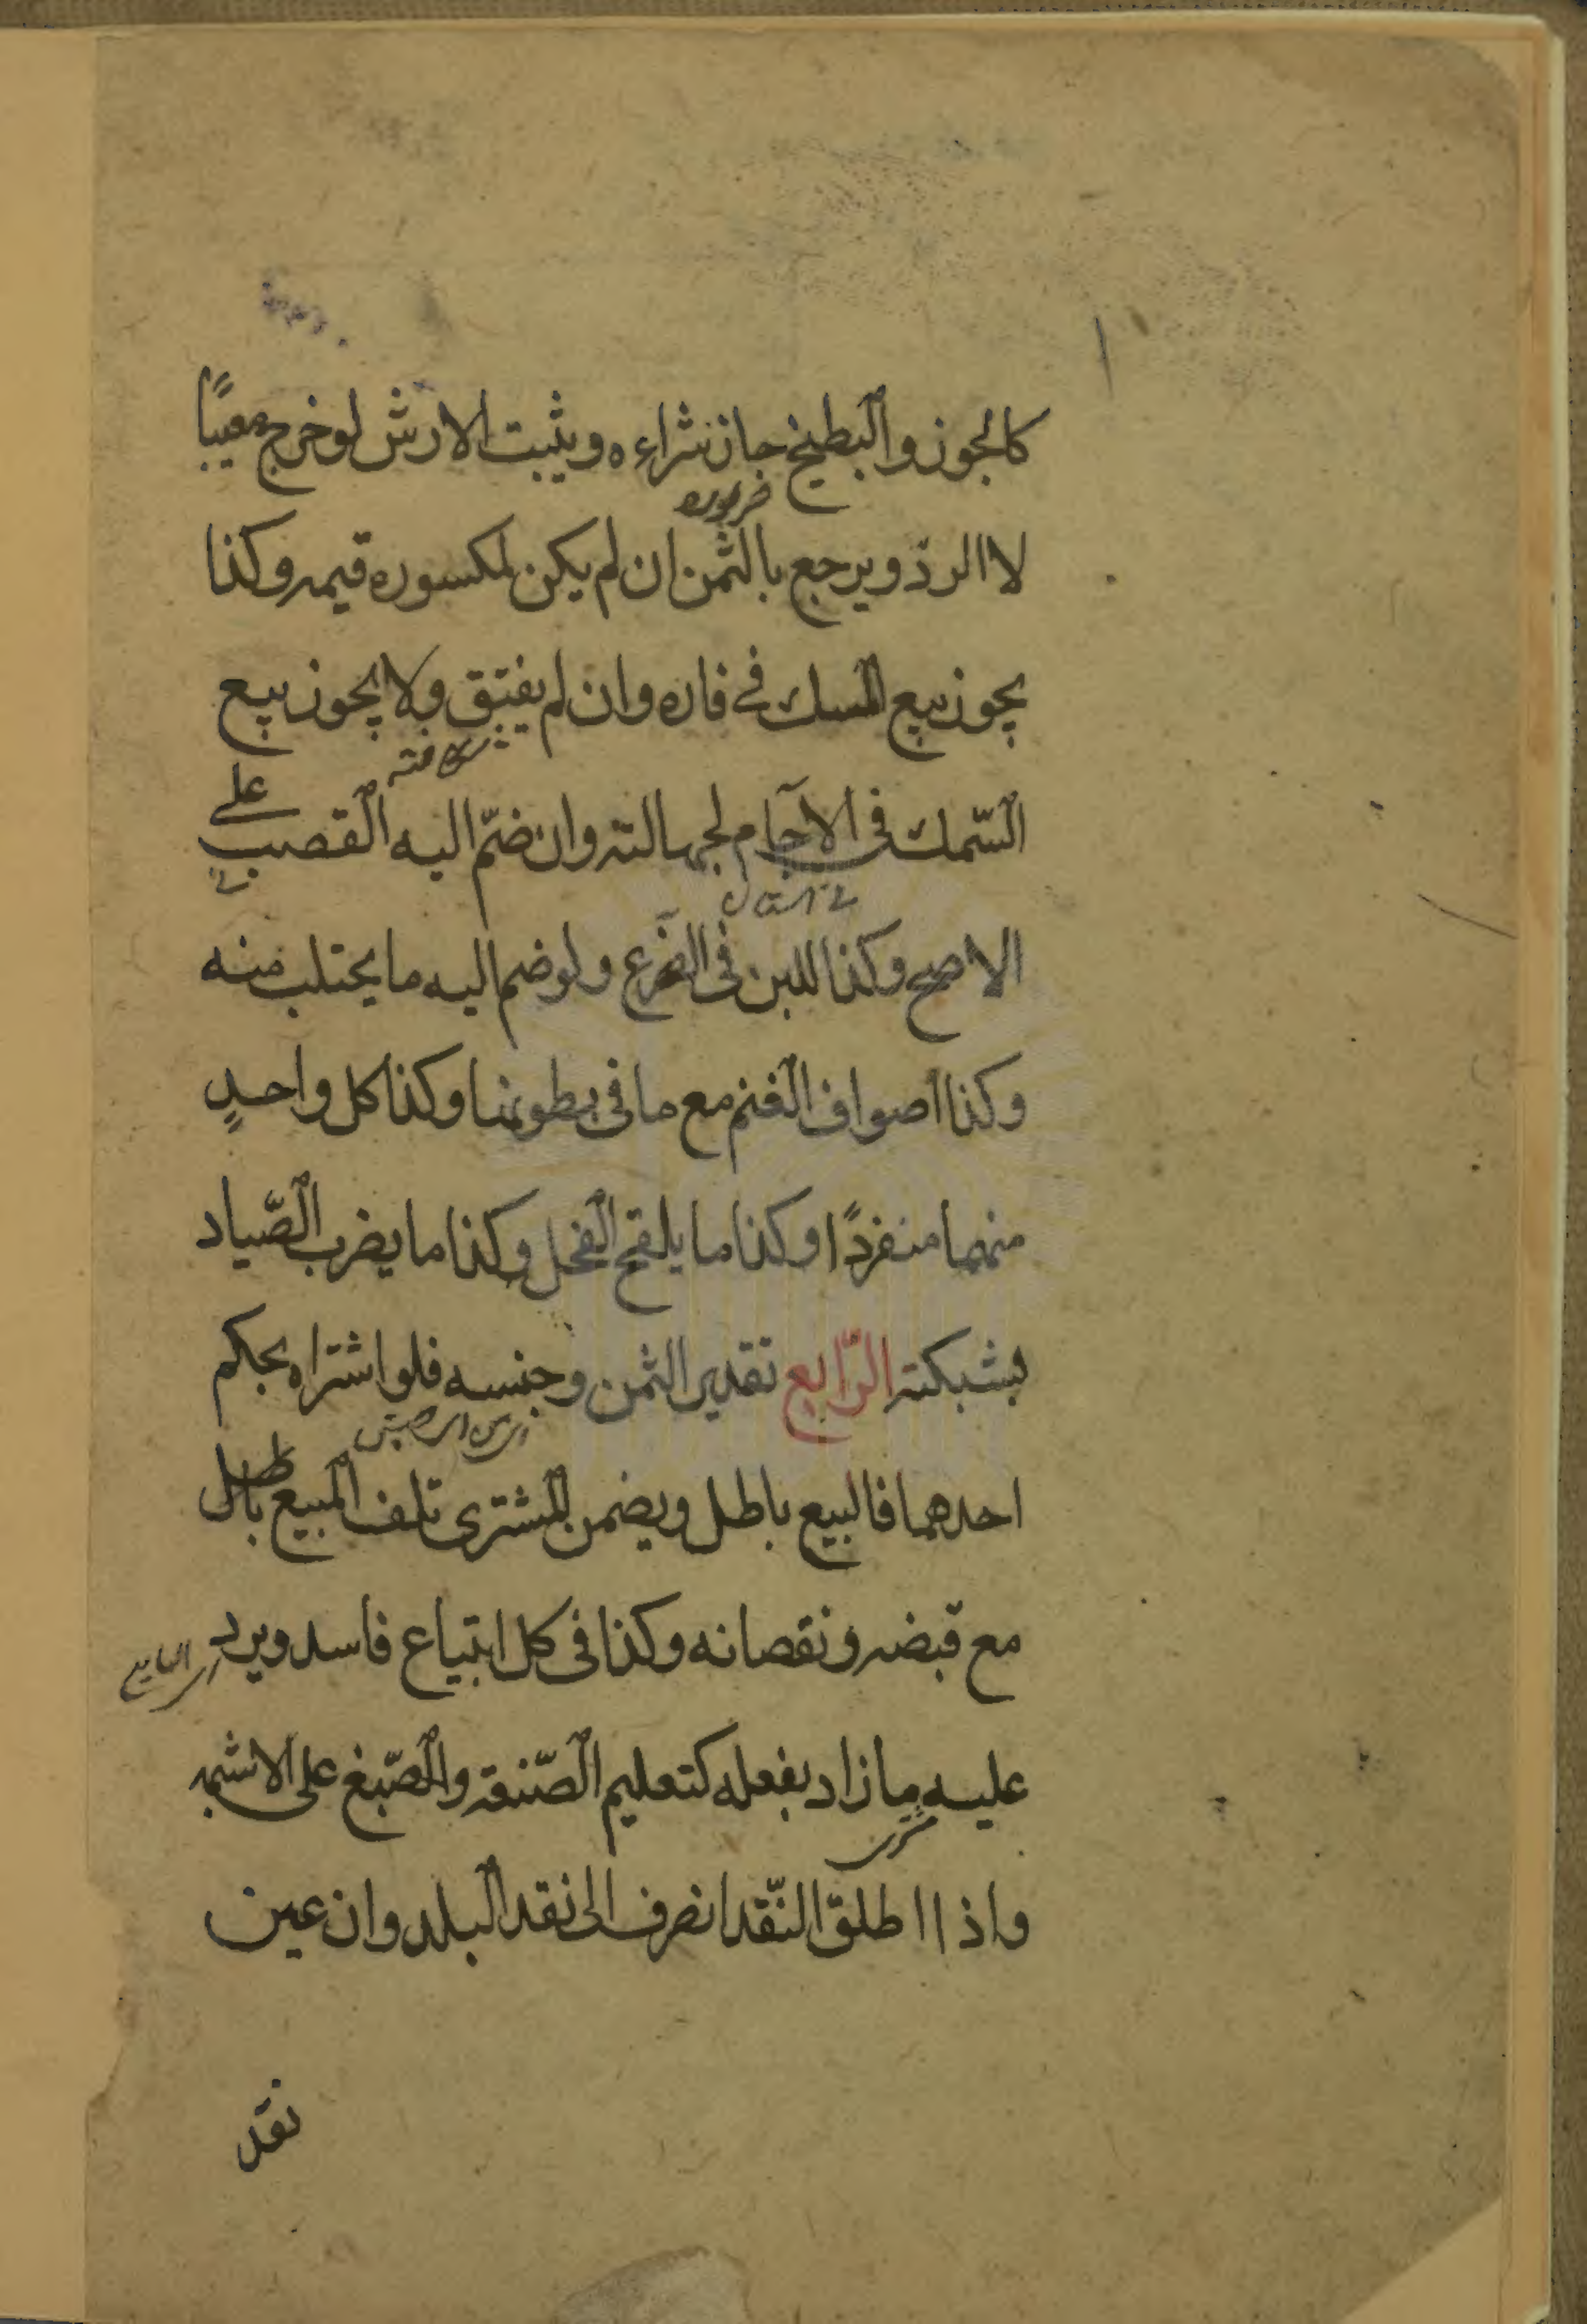 كالجوز والبطيخ جاز شراءه ويثبت الارش لو خرج معيبًا
لا الردّ ويرجع بالثمن ان لم يكن لمكسوره قيمه وكذا
يجوز بيع المسك في فاره وان لم يفتق ولا يجوز بيع
السّمك فى الآجام لجهالته وان ضمّ اليه القصب على
الاصح وكذا اللبن فى الضرع ولو ضم اليه ما يحتلب منه
وكذا اصواف الغنم مع ما فى بطونها وكذا كل واحدٍ
منهما منفردًا وكذا ما يلقح الفحل وكذا ما يضرب الصّياد
بشبكته الرّابع تقدير الثمن وجنسه فلو اشتراه بحكم
احدهما فالبيع باطل ويضمن المشترى تلف المبيع باطل
مع قبضه ونقصانه وكذا فى كل ابتياع فاسد ويرد
عليه ما زاد بفعله كتعليم الصّنعة والصّبغ على الاشبه
واذا اطلق النّقد انصرف الى نقد البلد وان عين
نقد